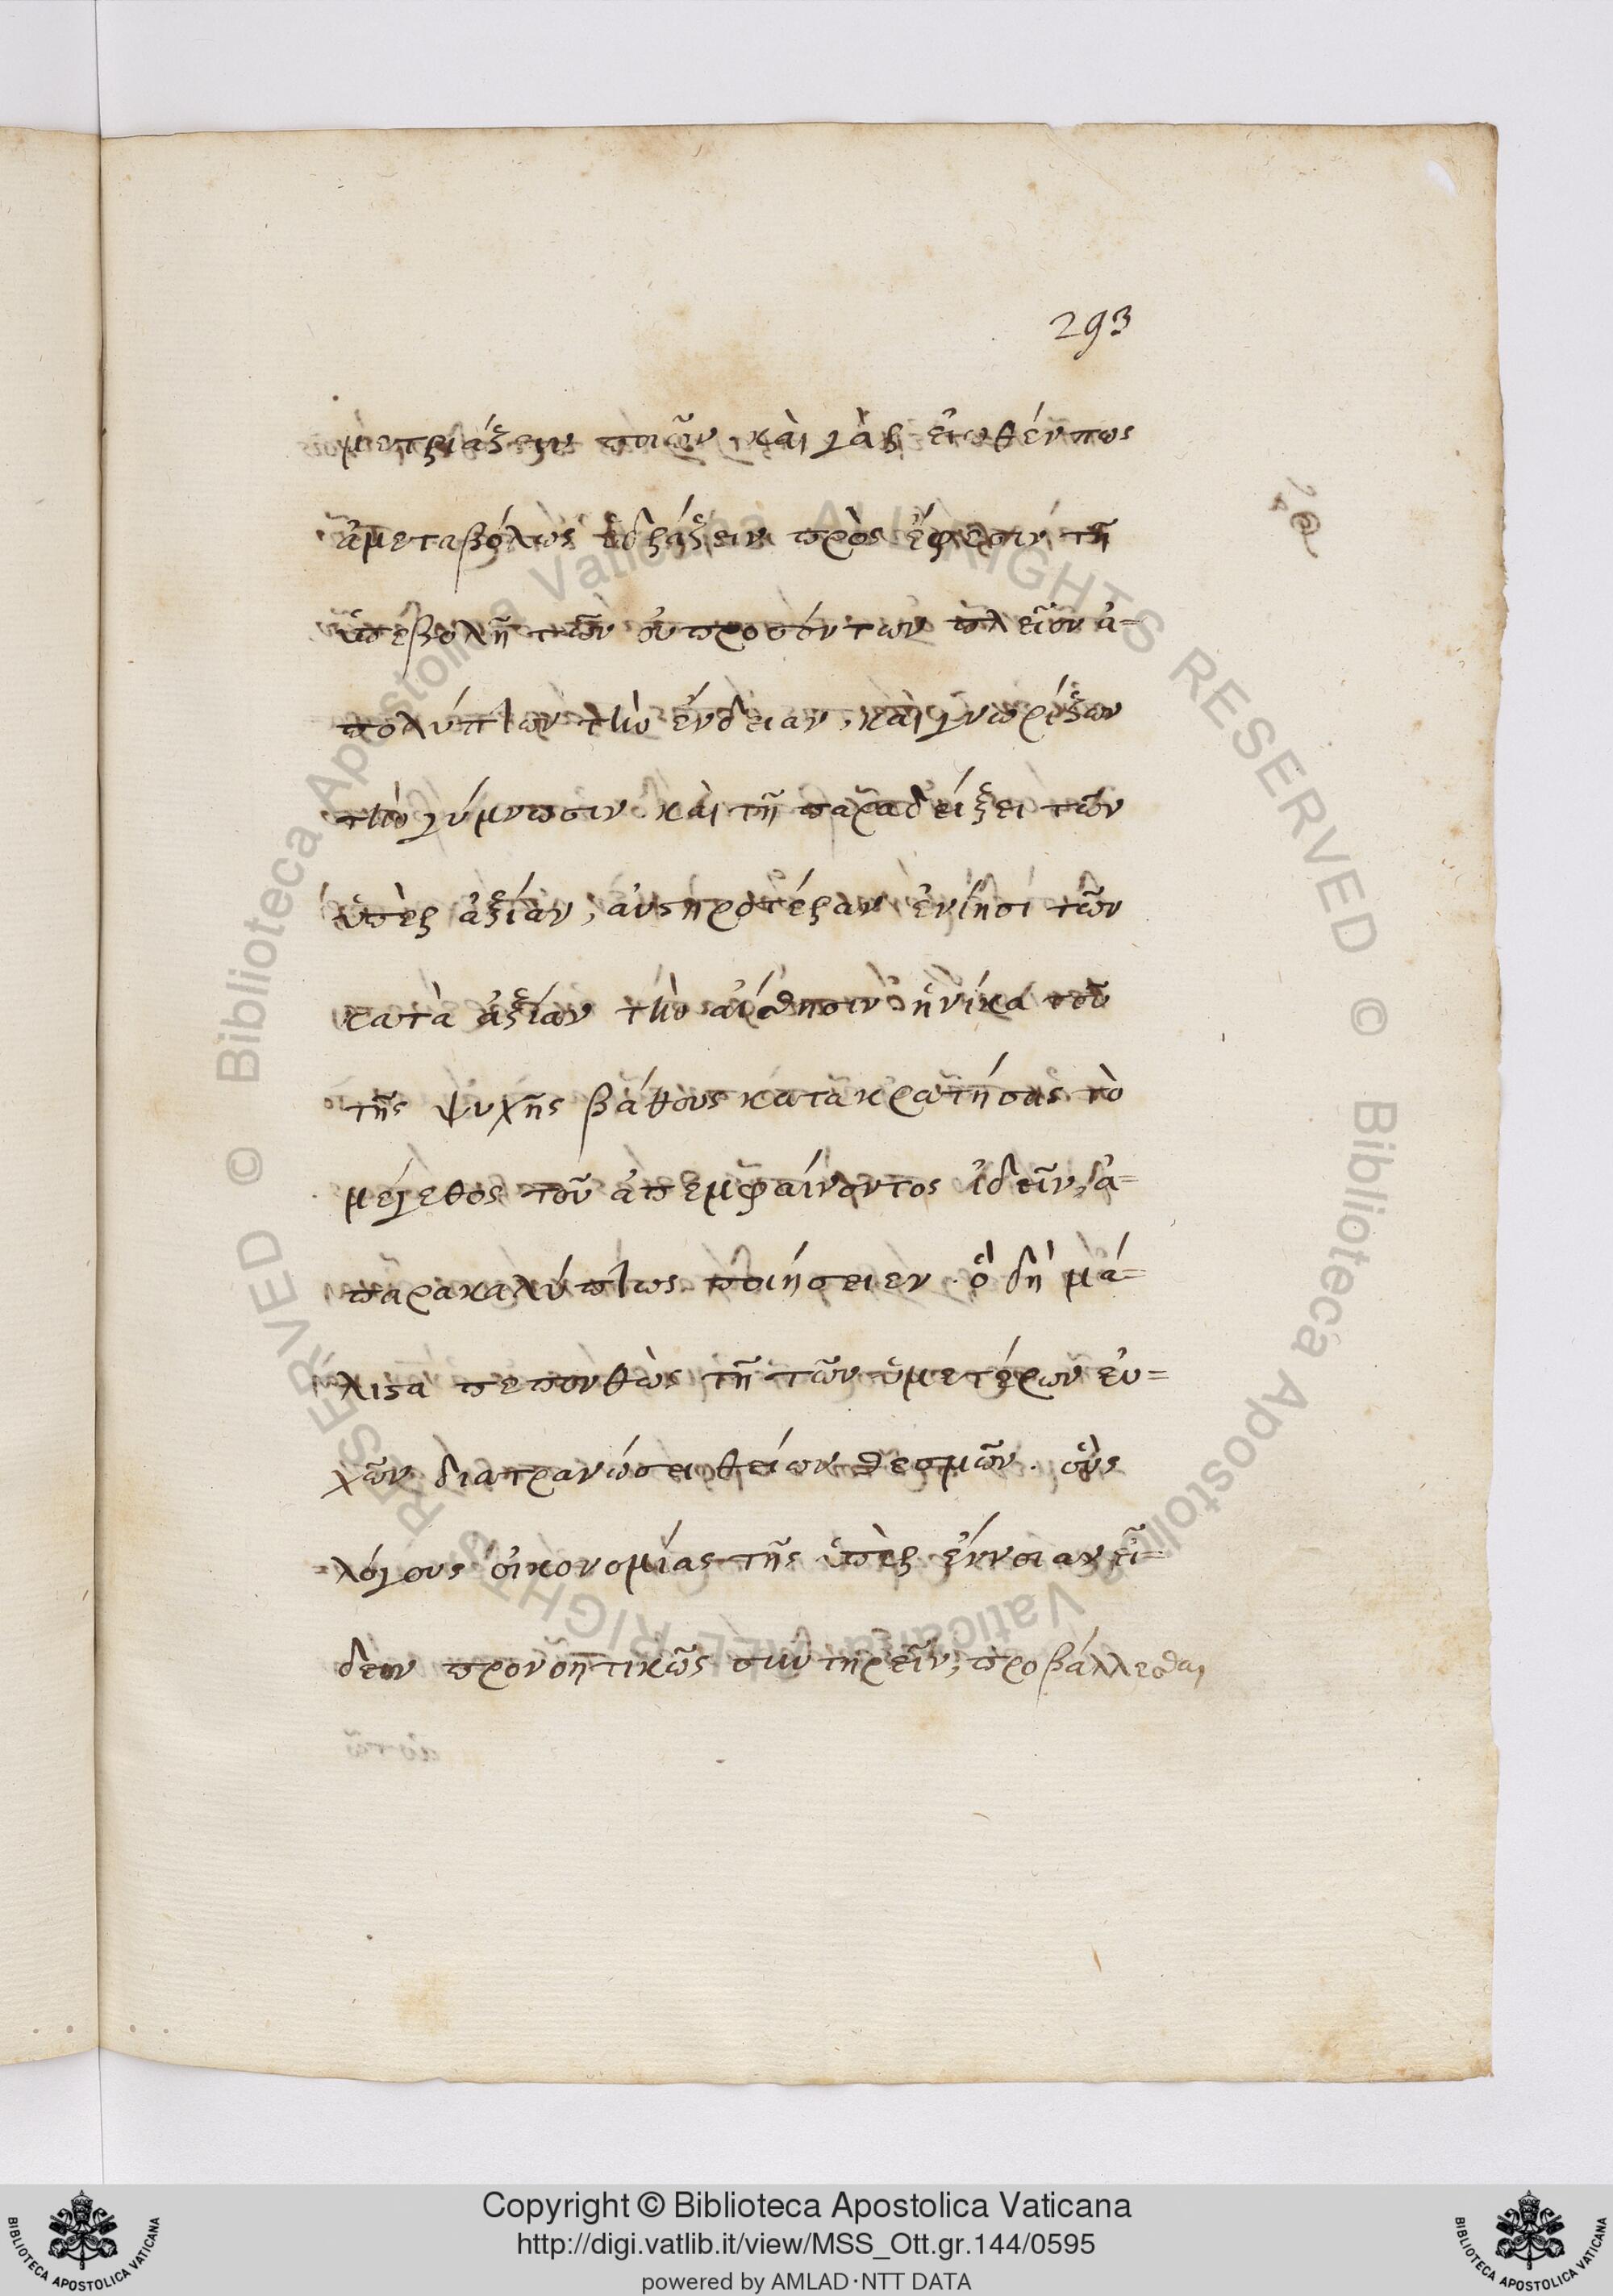 293
μετριάζειν ποιῶν· καὶ γὰρ εἰωθέν πως
ἀμεταβόλως ἑδράζειν πρὸς ἔφεσιν τῆ
ὑπερβολῆ τῶν οὐ προσόντων πλεῖον ἀ=
πολύπτων τὴν ἔνδειαν, καὶ γνωρίζων
τὴν γύμνωσιν· καὶ τῆ παραδείξει τῶν
ὑπὲρ ἀξίαν, αὐστηροτέραν ἐνίησι τῶν
κατὰ ἀξίαν τὴν αἴσθησιν· ἡνίκα τοῦ
τῆς ψυχῆς βάθους κατακρατήσας τὸ
μέγεθος τοῦ ἀπεμφαίνοντος ἰδεῖν, ἀ=
παρακαλύπτως ποιήσειεν· ὃ δὴ μά=
λιστα πεπονθὼς τῆ τῶν ὑμετέρων εὐ=
χῶν διατρανώσει θείων θεσμῶν· οὓς
λόγους οἰκονομίας τῆς ὑπὲρ ἔννοιαν εἶ=
δεν προνοητικῶς συντηρεῖν, προβάλλεσθαι
© Biblioteca Apostolica Vaticana ALL RIGHTS RESERVED © Biblioteca Apostolica Vaticana ALL RIGHTS RESERVED
Copyright © Biblioteca Apostolica Vaticana
http://digi.vatlib.it/view/MSS_Ott.gr.144/0595
powered by AMLAD·NTT DATA
BIBLIOTECA APOSTOLICA VATICANA
BIBLIOTECA APOSTOLICA VATICANA